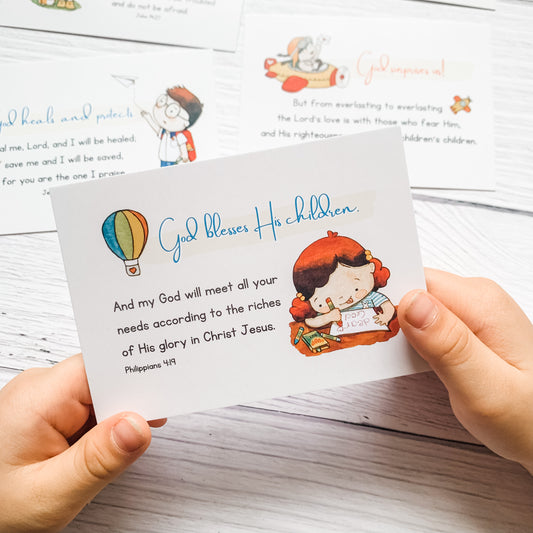 and do not be afraid.
John 14:27
God heals and protects
al me, Lord, and I will be healed;
save me and I will be saved,
for you are the one I praise.
Je
But from everlasting to everlasting
the Lord's love is with those who fear Him,
and His righteous children's children.
God blesses His children.
And my God will meet all your
needs according to the riches
of His glory in Christ Jesus.
Philippians 4:19
dear
God